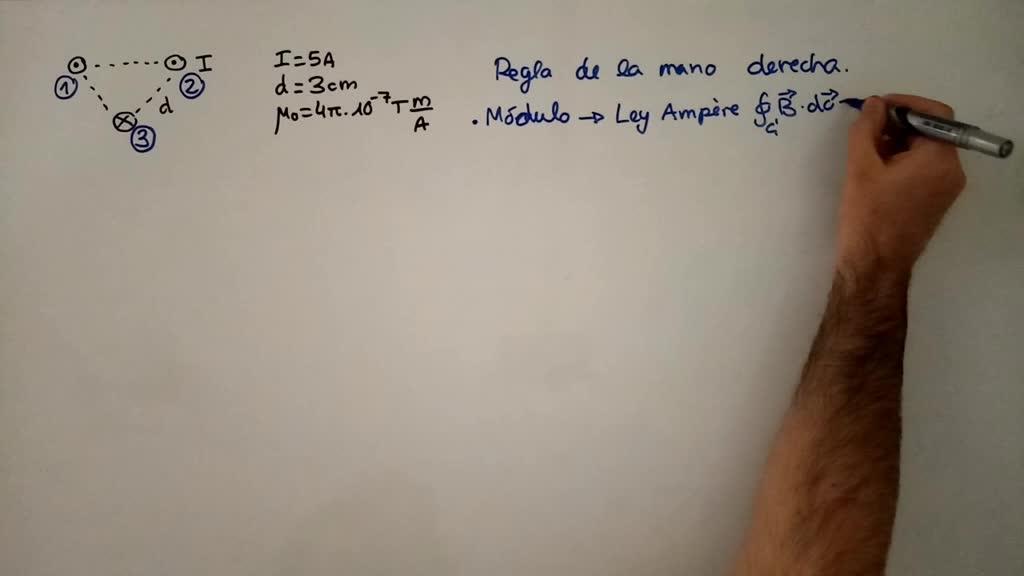 I
① ②
d
③
I = 5A
d = 3cm
μ₀ = 4π·10⁻⁷ T m/A
Regla de la mano derecha.
· Módulo → Ley Ampère ∮_C B⃗·dl⃗